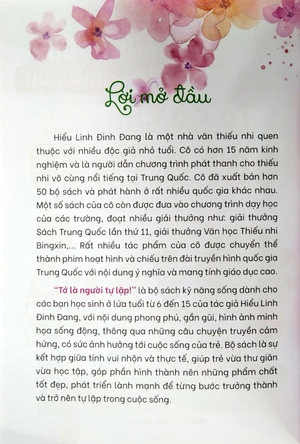 Lời mở đầu
Hiểu Linh Đinh Đang là một nhà văn thiếu nhi quen
thuộc với nhiều độc giả nhỏ tuổi. Cô có hơn 15 năm kinh
nghiệm và là người dẫn chương trình phát thanh cho thiếu
nhi vô cùng nổi tiếng tại Trung Quốc. Cô đã xuất bản hơn
50 bộ sách và phát hành ở rất nhiều quốc gia khác nhau.
Một số sách của cô còn được đưa vào chương trình dạy học
của các trường, đoạt nhiều giải thưởng như: giải thưởng
Sách Trung Quốc lần thứ 11, giải thưởng Văn học Thiếu nhi
Bingxin,... Rất nhiều tác phẩm của cô được chuyển thể
thành phim hoạt hình và chiếu trên đài truyền hình quốc gia
Trung Quốc với nội dung ý nghĩa và mang tính giáo dục cao.
"Tớ là người tự lập!" là bộ sách kỹ năng sống dành cho
các bạn học sinh ở lứa tuổi từ 6 đến 15 của tác giả Hiểu Linh
Đinh Đang, với nội dung phong phú, gần gũi, hình ảnh minh
họa sống động, thông qua những câu chuyện truyền cảm
hứng, có sức ảnh hưởng tới cuộc sống của trẻ. Bộ sách là sự
kết hợp giữa tính vui nhộn và thực tế, giúp trẻ vừa thư giãn
vừa học tập, góp phần hình thành nên những phẩm chất
tốt đẹp, phát triển lành mạnh để từng bước trưởng thành
và trở nên tự lập trong cuộc sống.